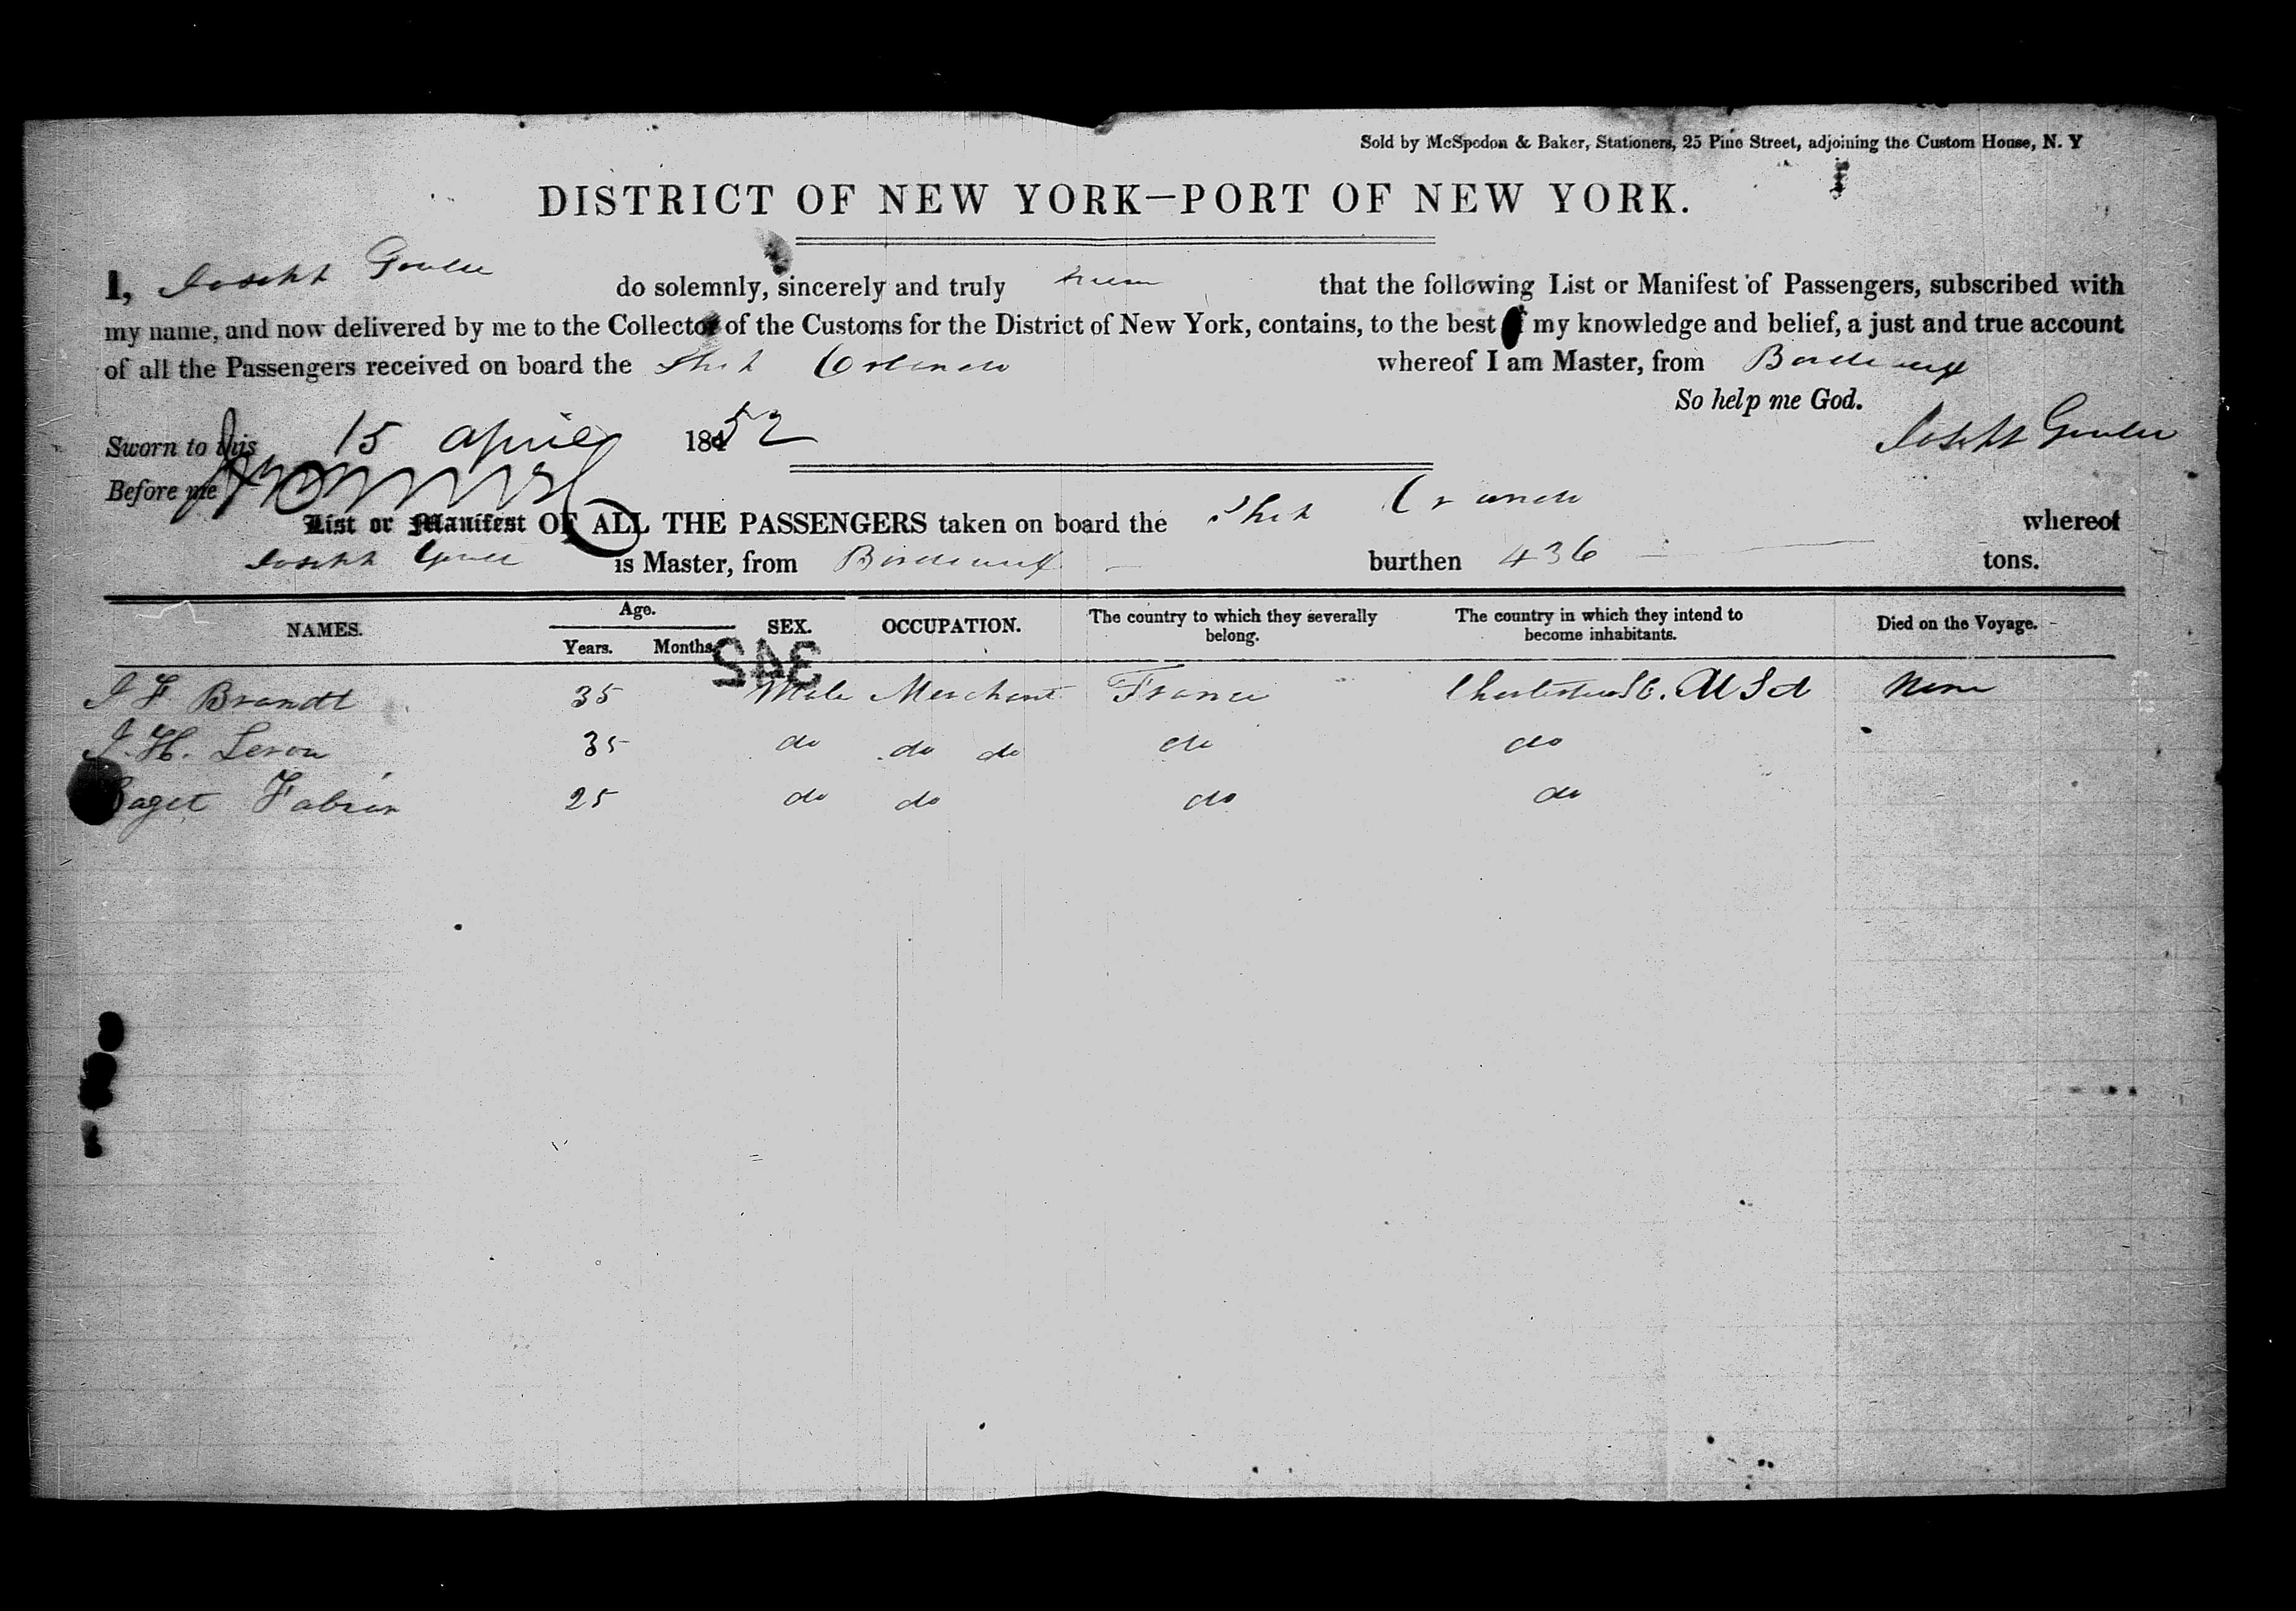 Sold by McSpedon & Baker, Stationers, 25 Pine Street, adjoining the Custom House, N. Y
DISTRICT OF NEW YORK—PORT OF NEW YORK.
I, Joseph do solemnly, sincerely and truly that the following List or Manifest of Passengers, subscribed with
my name, and now delivered by me to the Collector of the Customs for the District of New York, contains, to the best of my knowledge and belief, a just and true account
of all the Passengers received on board the Ship Orlando whereof I am Master, from Bordeaux
So help me God.
Sworn to this 15 April 1852 Joseph
Before me
List or Manifest OF ALL THE PASSENGERS taken on board the Ship Orlando whereof
Joseph is Master, from Bordeaux burthen 436 tons.
NAMES. Age. Years. Months. SEX. OCCUPATION. The country to which they severally belong. The country in which they intend to become inhabitants. Died on the Voyage.
342
J F Brandt 35 Male Merchant France Charleston S C. U S A None
J. H. Leron 35 do do do do do
Paget Fabien 25 do do do do